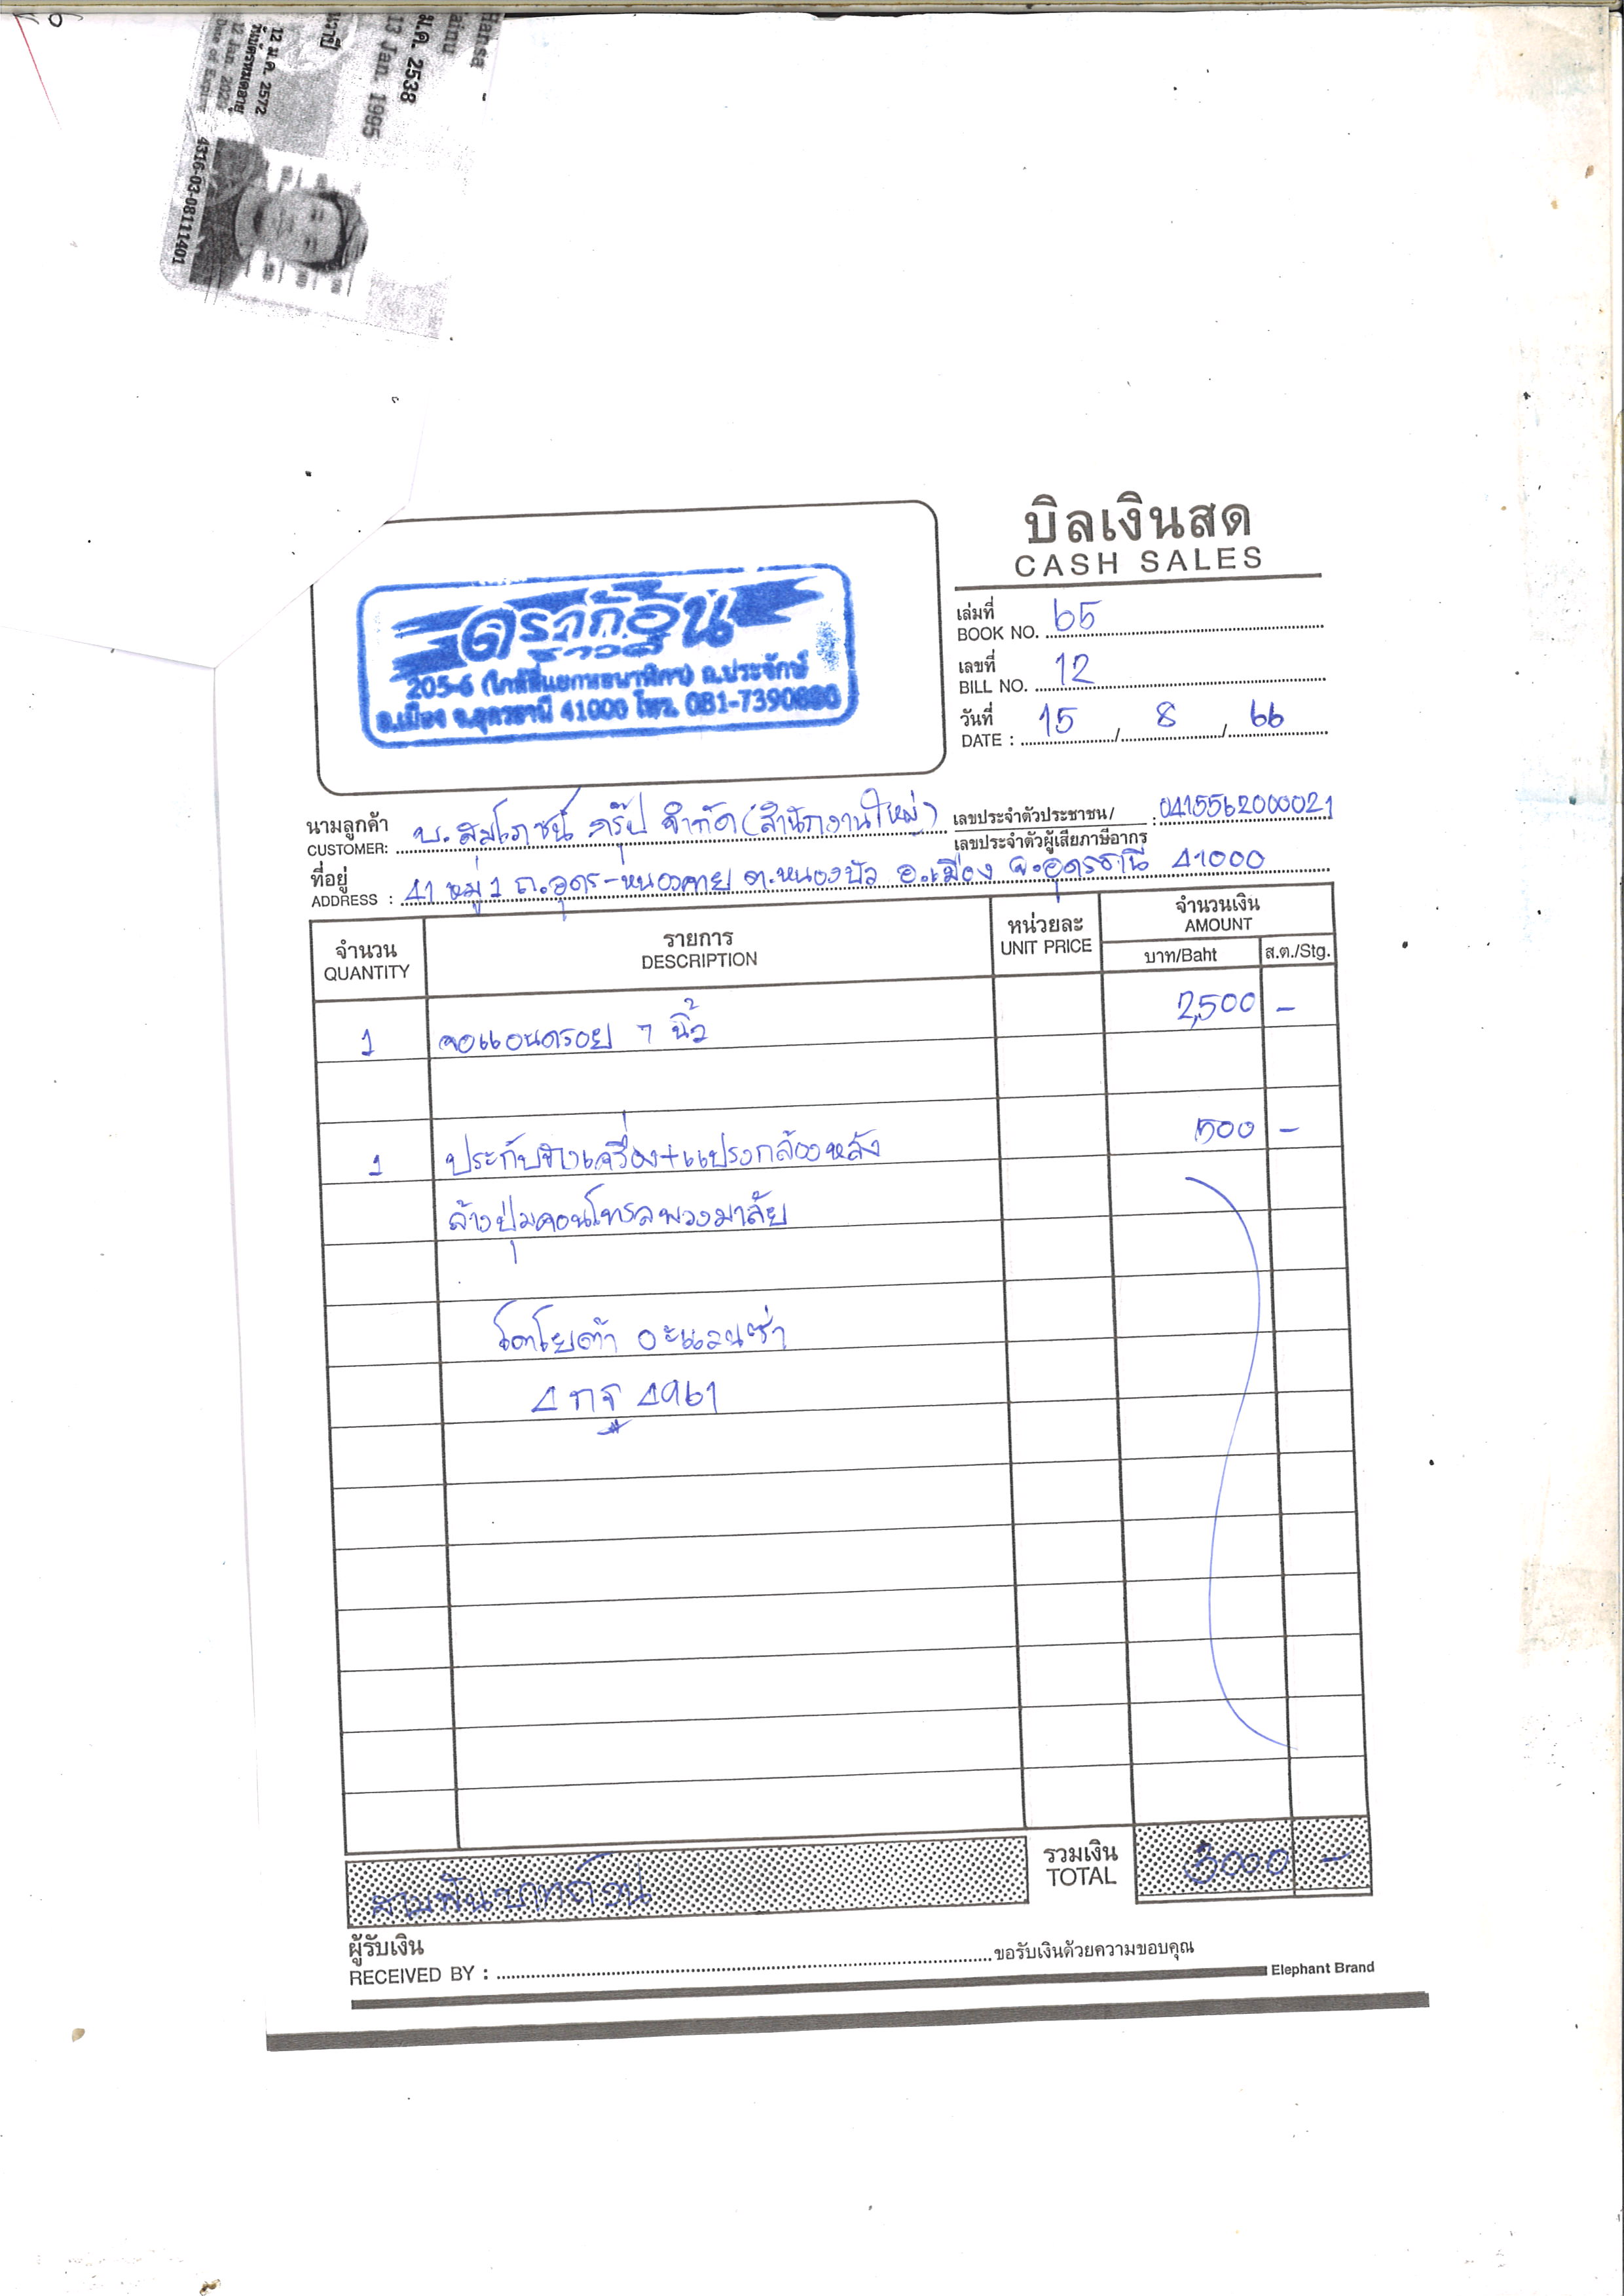 Hansa
ainu
ม.ค. 2538
13 Jan. 1995
12 ม.ค. 2572
วันบัตรหมดอายุ
4316-03-08111401
บิลเงินสด
CASH SALES
ดราก้อน
205-6 (ใกล้สี่แยกหอนาฬิกา) ถ.ประจักษ์
อ.เมือง จ.อุดรธานี 41000 โทร. 081-7390880
เล่มที่
BOOK NO. 65
เลขที่
BILL NO. 12
วันที่
DATE : 15 / 8 / 66
นามลูกค้า
CUSTOMER: บ. สมโภชน์ กรุ๊ป จำกัด (สำนักงานใหญ่)
เลขประจำตัวประชาชน/
เลขประจำตัวผู้เสียภาษีอากร : 0415562000021
ที่อยู่
ADDRESS : 41 หมู่ 1 ถ.อุดร-หนองคาย ต.หนองบัว อ.เมือง จ.อุดรธานี 41000
จำนวน รายการ หน่วยละ จำนวนเงิน
QUANTITY DESCRIPTION UNIT PRICE AMOUNT
บาท/Baht ส.ต./Stg.
1 จอแอนดรอย 7 นิ้ว 2,500 -
1 ประกับข้างเครื่อง+แปรงกล้องหลัง 500 -
ล้างปุ่มคอนโทรลพวงมาลัย
โตโยต้า อะแวนซ่า
4 กฐ 4961
สามพันบาทถ้วน
รวมเงิน
TOTAL 3000 -
ผู้รับเงิน
RECEIVED BY : ขอรับเงินด้วยความขอบคุณ
Elephant Brand